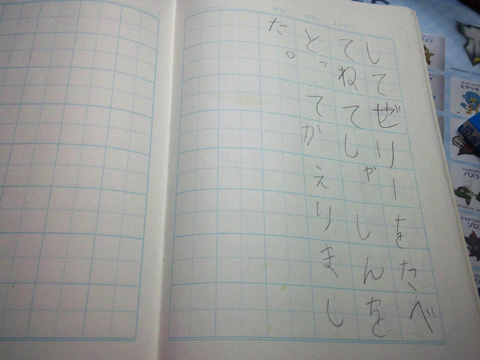 してぜりーをたべ
てねてしゃしんを
とってかえりまし
た。